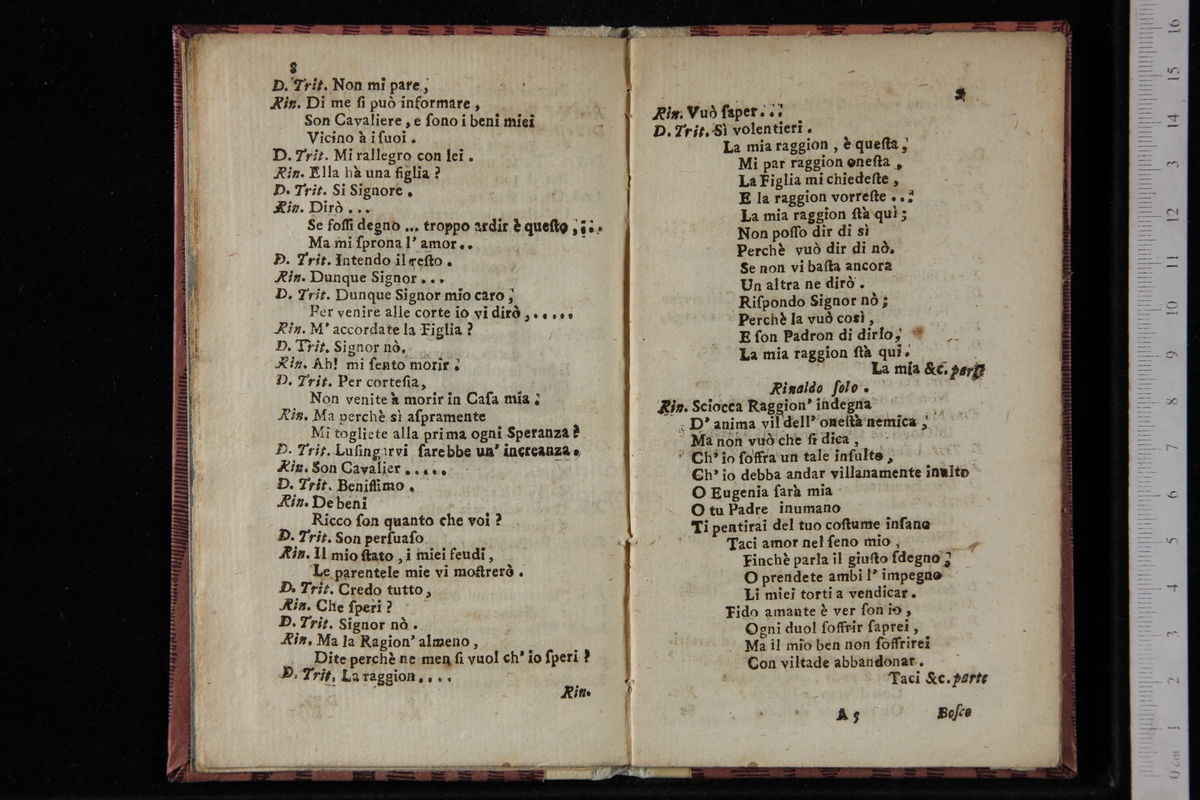 8
D. Trit. Non mi pare,
Rin. Di me ſi può informare,
Son Cavaliere, e ſono i beni miei
Vicino à i ſuoi.
D. Trit. Mi rallegro con lei.
Rin. Ella hà una figlia?
D. Trit. Si Signore.
Rin. Dirò...
Se foſſi degno ... troppo ardir è queſto,...
Ma mi ſprona l' amor..
D. Trit. Intendo il reſto.
Rin. Dunque Signor...
D. Trit. Dunque Signor mio caro;
Per venire alle corte io vi dirò,.....
Rin. M' accordate la Figlia?
D. Trit. Signor nò.
Rin. Ah! mi ſento morir.
D. Trit. Per corteſia,
Non venite à morir in Caſa mia.
Rin. Ma perchè sì aſpramente
Mi togliete alla prima ogni Speranza?
D. Trit. Luſingarvi ſarebbe un' increanza.
Rin. Son Cavalier.....
D. Trit. Beniſſimo.
Rin. De beni
Ricco ſon quanto che voi?
D. Trit. Son perſuaſo
Rin. Il mio ſtato, i miei feudi,
Le parentele mie vi moſtrerò.
D. Trit. Credo tutto,
Rin. Che ſperi?
D. Trit. Signor nò.
Rin. Ma la Ragion' almeno,
Dite perchè ne men ſi vuol ch' io ſperi?
D. Trit. La raggion....
Rin.
Rin. Vuò ſaper...
D. Trit. Sì volentieri.
La mia raggion, è queſta;
Mi par raggion oneſta,
La Figlia mi chiedeſte,
E la raggion vorreſte...
La mia raggion ſtà quì;
Non poſſo dir di sì
Perchè vuò dir di nò.
Se non vi baſta ancora
Un altra ne dirò.
Riſpondo Signor nò;
Perchè la vuò così,
E ſon Padron di dirlo;
La mia raggion ſtà qui.
La mia &c. parte
Rinaldo ſolo.
Rin. Sciocca Raggion' indegna
D' anima vil dell' oneſtà nemica;
Ma non vuò che ſi dica,
Ch' io ſoffra un tale inſulto,
Ch' io debba andar villanamente inulto
O Eugenia ſarà mia
O tu Padre inumano
Ti pentirai del tuo coſtume inſano
Taci amor nel ſeno mio,
Finchè parla il giuſto ſdegno;
O prendete ambi l' impegno
Li miei torti a vendicar.
Fido amante è ver ſon io,
Ogni duol ſoffrir ſaprei,
Ma il mio ben non ſoffrirei
Con viltade abbandonar.
Taci &c. parte
A 5 Boſco